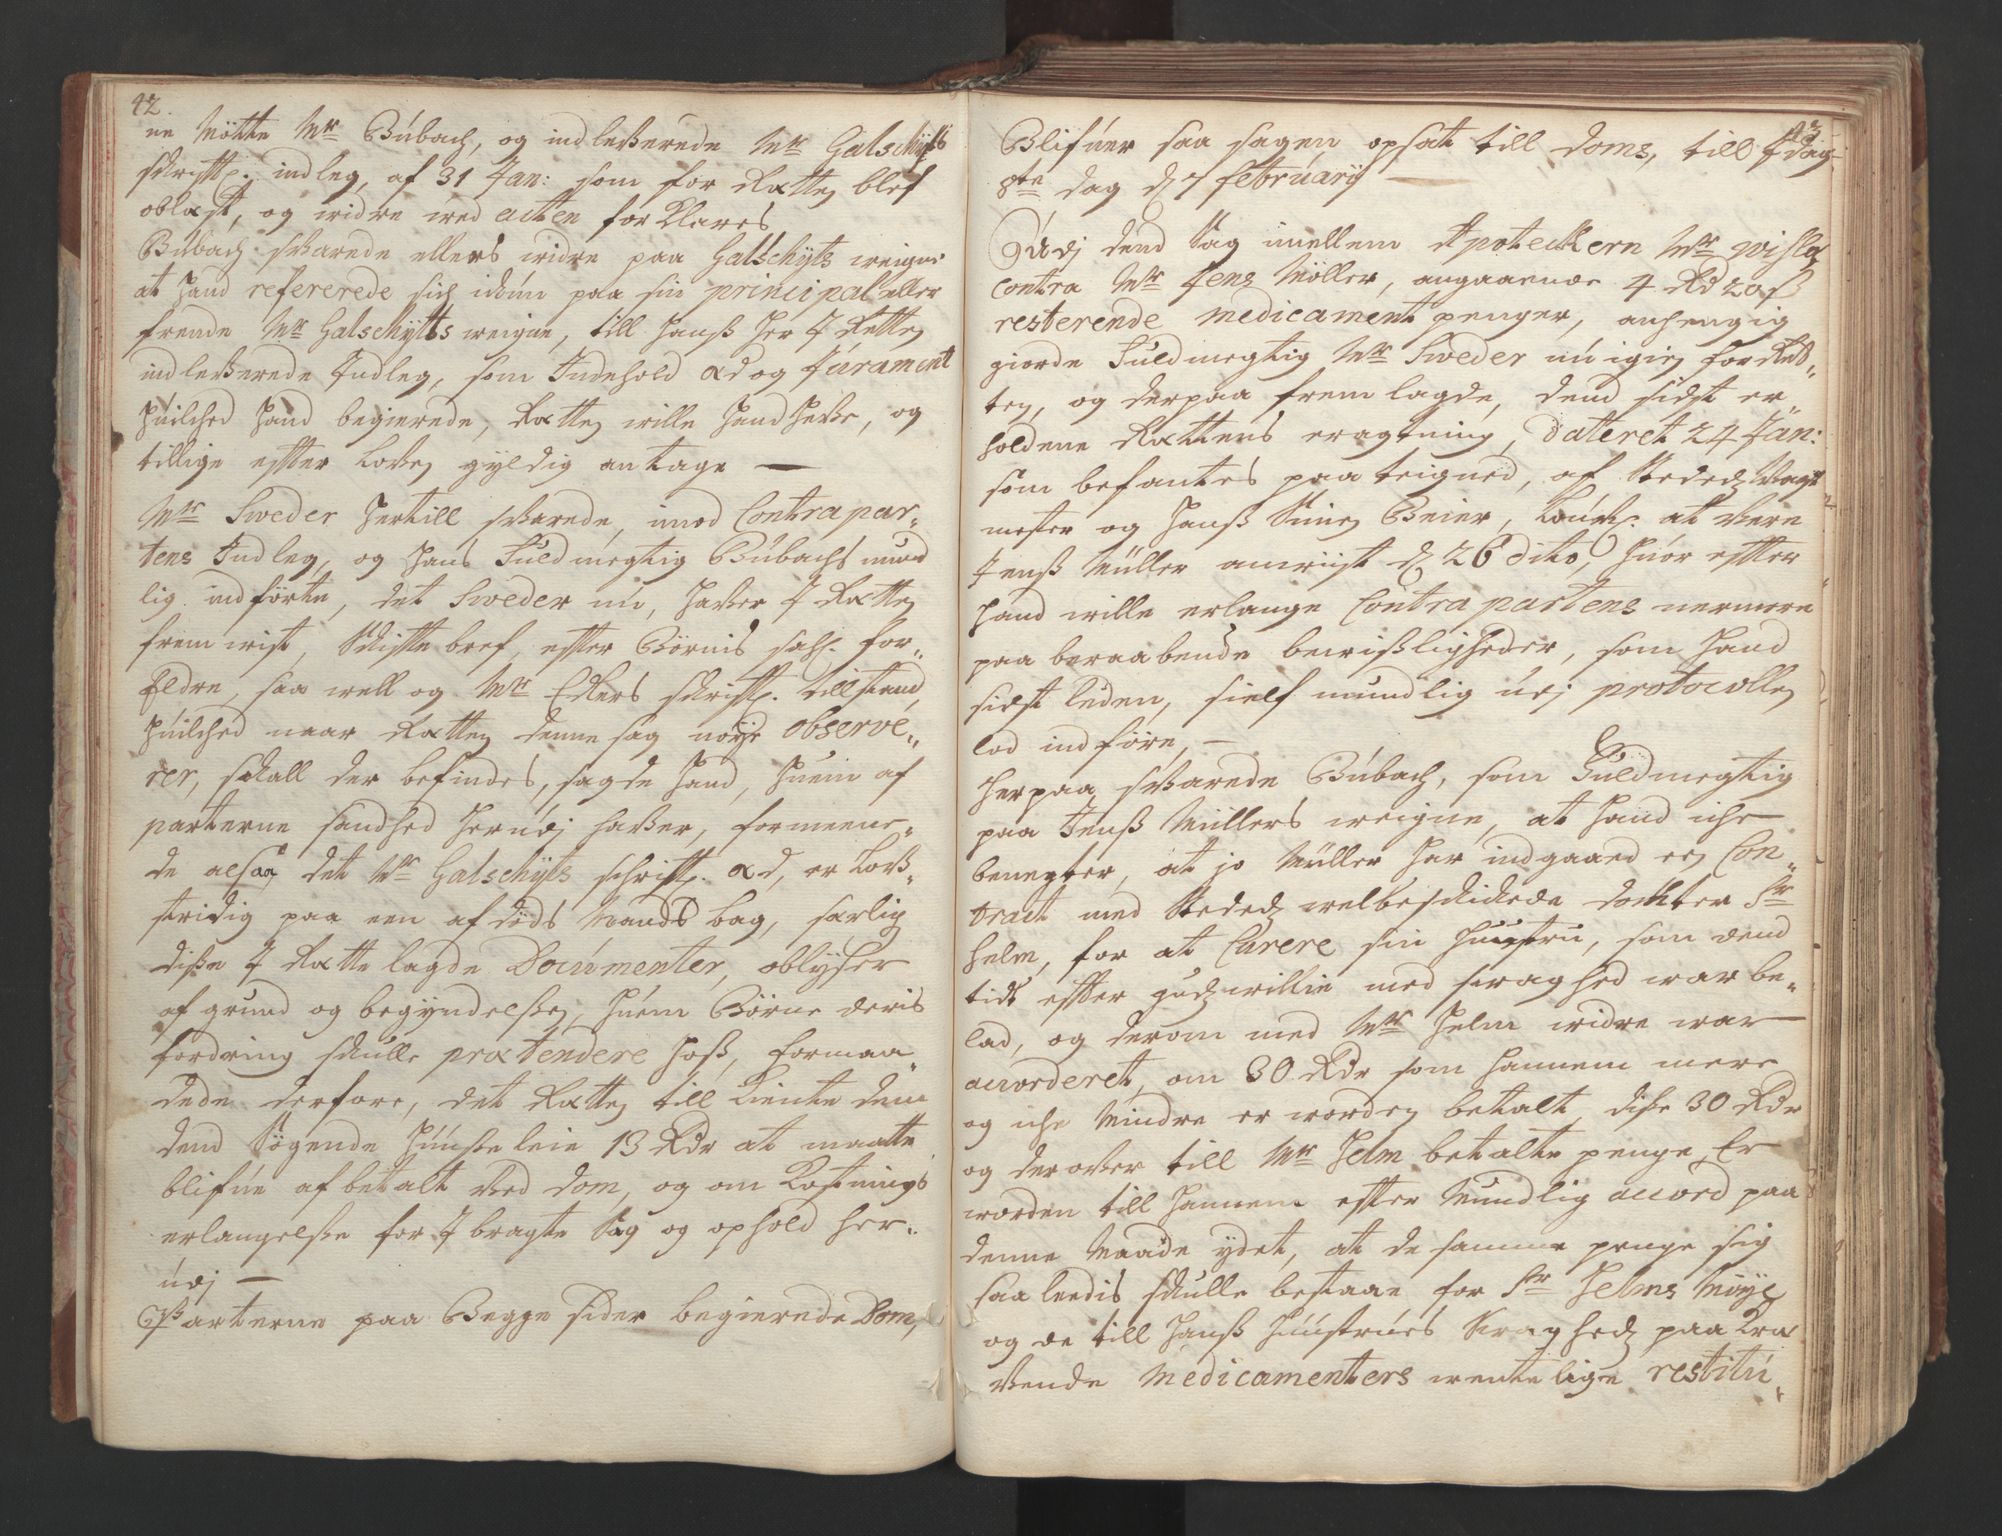 42.
ne Mötte Mr Búbach, og indleverede Mr Galschyts
skriftl. indleg, af 31 Jan: som for Rætten blef
oblæst, og widre wed acten forklares
Búbach svarede ellers widre paa Galschyts weigne
at hand refererede sich idúm paa sin principal eller
frende Mr Galschytts weigne, till hanss her J Retten
indleverede Indleg, som Indehold æd og Júrament
húilched hand begierede, Rætten wille hand hafve, og
tillige efter Loven gyldig antage —
Mr Sweder hertill svarede, imod Contrapar„
tens Indleg, og hans Fúldmegtig Búbachs mund
lig indförte, det Sweder nú, hafver J Rætten
frem wist, Skiftte bref, efter Börnis sahl. for„
Eldre, saa well og Mr Edlers skriftl. tillstand,
húilched naar Rætten denne sag nöye observé„
rer, skall der befindes, sagde hand, húem af
parterne sandhed herúdj hafver, formeene„
de alsaa det Mr Galschyts schriftl. æd, er Lov„
stridig paa een afdöds Mands bag, særlig
disse J Rætte lagde Documenter, oblyser
af grund og begyndelssen, húem Börne deris
fordring skulle prætendere hoss, formaa„
dede derfore, det Rætten till kiente dem
dend Sögende húússe leie 13 Rdr at maatte
blifúe afbetalt ved dom, og om kostnings
erlangelsse for J bragte Sag og ophold her„
údj —
Parterne paa Begge sider begierede Dom,
43
Blifúer saa sagen opsat till doms, till J dag
8te dag d 7 februarij —
Údj dend Sag imellem Apoteckern Mr
contra Mr Jens Möller, angaaende 4 Rd 20 ss
resterende medicament penger, anhengig
giorde Fúldmegtig Mr Sweder nú igien for Ret„
ten, og derpaa frem lagde, dend sidst er„
holdene Rættens eragtning, dateret 24 Jan:
som befantes paa teigned, af Stedets Vagt
mester og Hanss Beier, at være
Jenss Müller anwiist d 26 dito, húor efter
hand wille erlange Contrapartens nermere
paa beraabende bewissligheder, som hand
sidst leden, sielf mundlig údj protocollen
lod indföre, —
herpaa svarede Búbach, som Fúldmegtig
paa Jenss Müllers weigne, at hand iche
benegter, at jo Müller har indgaaed en Con„
tract med Stedets welbeskickede docter Sr
helm, for at Curere sin Húústrú, som dend
tidt efter gudz willie med svaghed war be„
lad, og derom med Mr Helm widre war
accorderet, om 30 Rdr som hannem mere
og iche Mindre er worden betalt, disse 30 Rdr
og derover till Mr Helm betalte penge, Er
worden till hannem efter Múndlig accord paa
denne Maade ydet, at de samme penge sig
saaledis skulle bestaae for Sr Helms Möye
og de till hanss Húústrúes Svaghedz paa kræ
vende Medicamenters wentelige restitú„